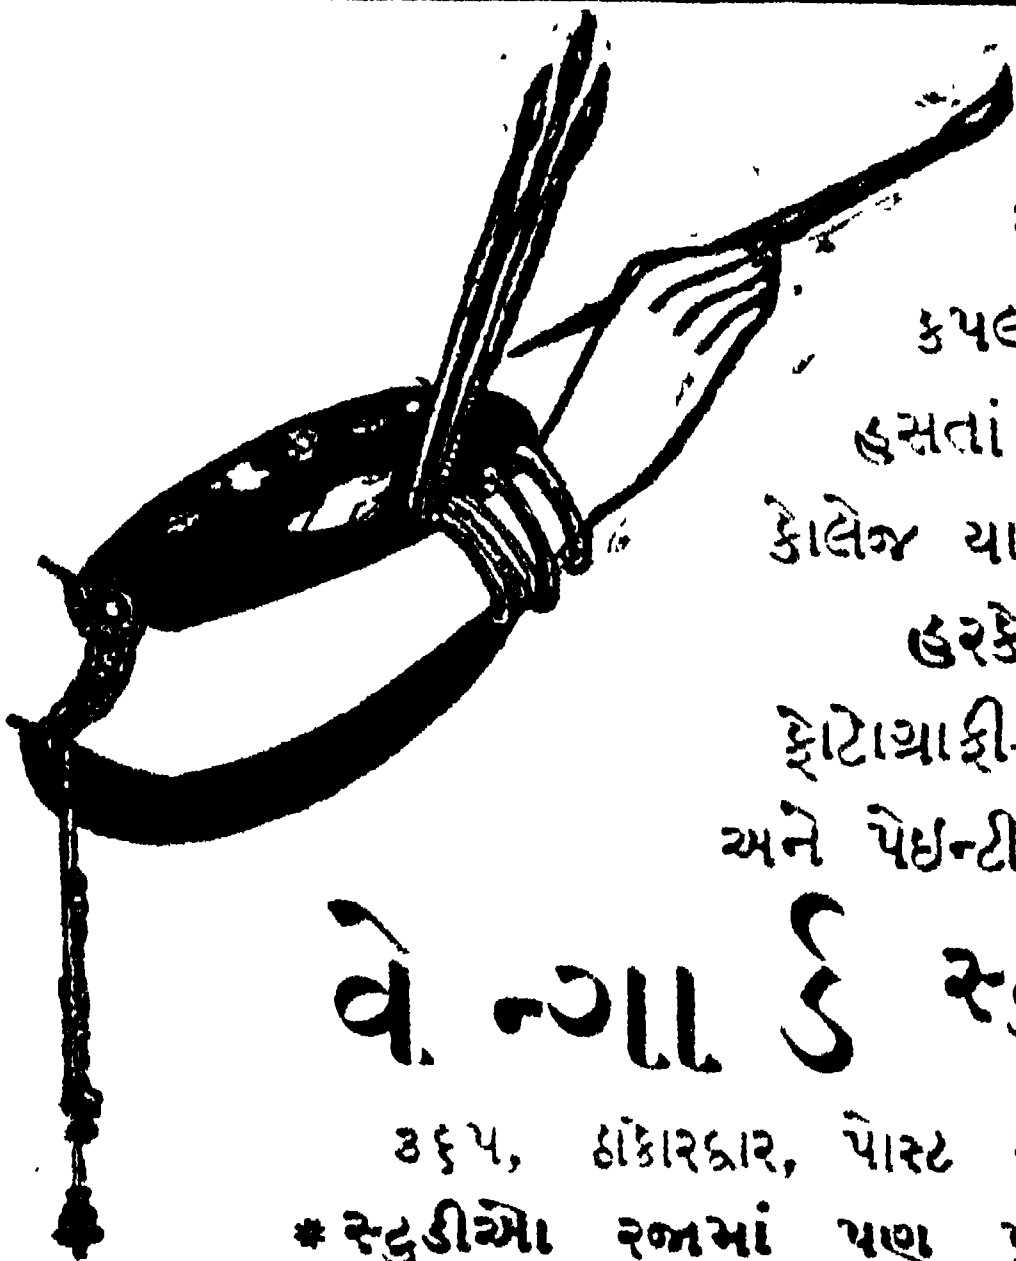 કપલ
હસતાં
કોલેજ યા
હરકે
ફોટોગ્રાફી-
અને પેઇન્ટી
વેન્ગાર્ડ સ્ટુ
૩૬૫, ઠાકોરદ્વાર, પોસ્ટ
*સ્ટુડીઓ રજામાં પણ